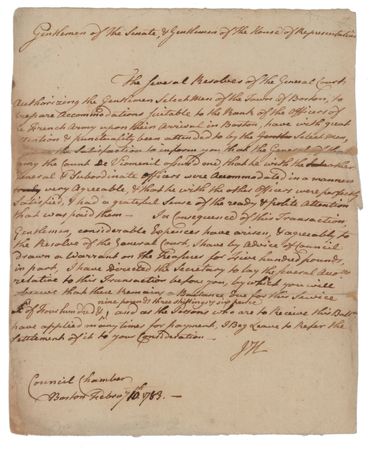 Gentlemen of the Senate, & Gentlemen of the House of Representatives
The several Resolves of the General Court
Authorizing the Gentlemen Selectmen of the Town of Boston, to
prepare Accommodations suitable to the Rank of the Officers of
the French Army upon their Arrival in Boston, have with great
attention & punctuality been attended to by the Selectmen,
the Satisfaction to inform you that the General of the
Army the Count De Viomenil of mentd one that he with the other
General & Subordinate officers were Accommodated in a manner
very Agreeable, & that he with the other Officers were perfectly
Satisfied, & had a grateful Sense of the ready & polite Attention
that was paid them — In Consequence of this Transaction,
Gentlemen, considerable Expences have arisen, & agreeably to
the Resolve of the General Court, I have by Advice of Council
drawn a Warrant on the Treasurer for Five hundred pounds,
in part, I have directed the Secretary to lay the several
relative to this Transaction before you, by which you will
observe that there remains a Ballance due for this Service
nine pounds three shillings & six pence
of Four hundred & and as the Persons who are to Receive this
have applied many times for payment, I Beg Leave to Refer the
settlement of it to your Consideration —
JH
Council Chamber
Boston Febry 10th 1783. —